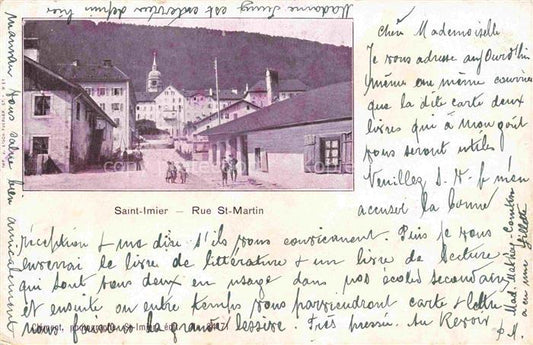 Madame Jung est enterrée depuis hier
Maman vous salue bien amicalement
Saint-Imier – Rue St-Martin
chère Mademoiselle
Je vous adresse aujourd'hui
même ou même courrier
que la dite carte deux
livres qui à mon goût
vous seront utiles
Veuillez S. V. p m'en
accuser la bonne
réception & me dire s'ils vous conviennent. Puis je vous
enverrai le livre de littérature & un livre de lecture
qui sont tous deux en usage dans nos écoles secondaires
et ensuite ou entre temps vous parviendront carte & lettre
nous faisons la grande lessive. Très pressée. Au Revoir
Mad. Mathey
a eu une fillette